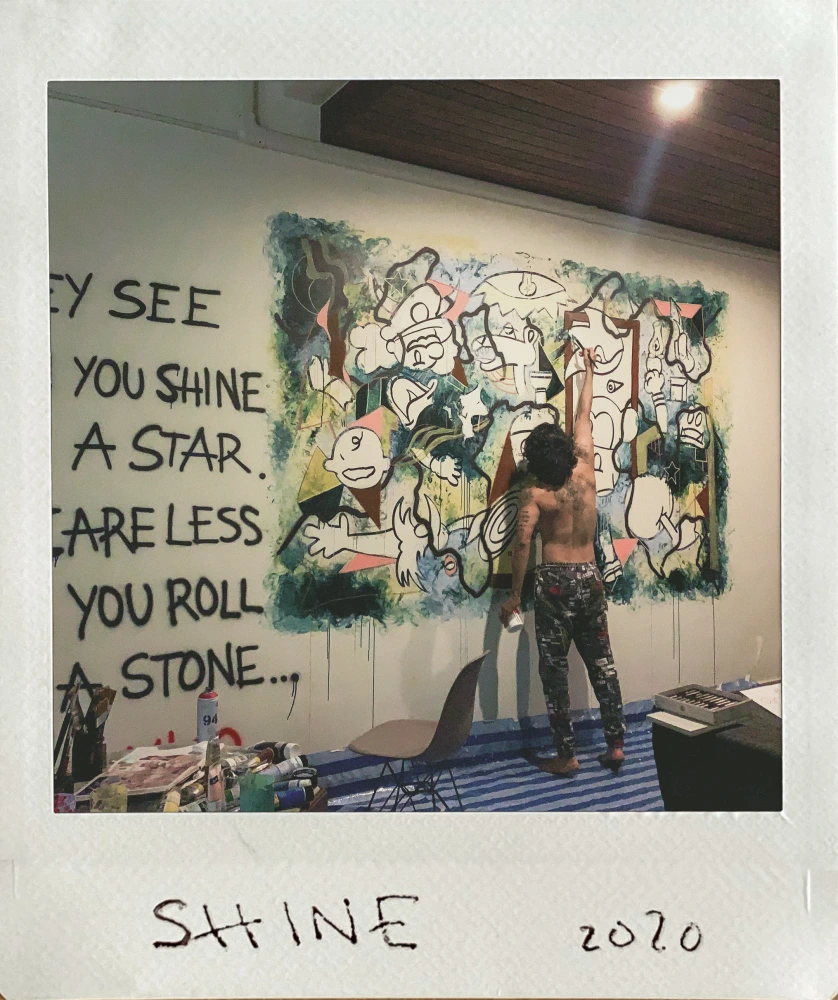 EY SEE
YOU SHINE
A STAR.
CARELESS
YOU ROLL
A STONE...
94
SHINE 2020